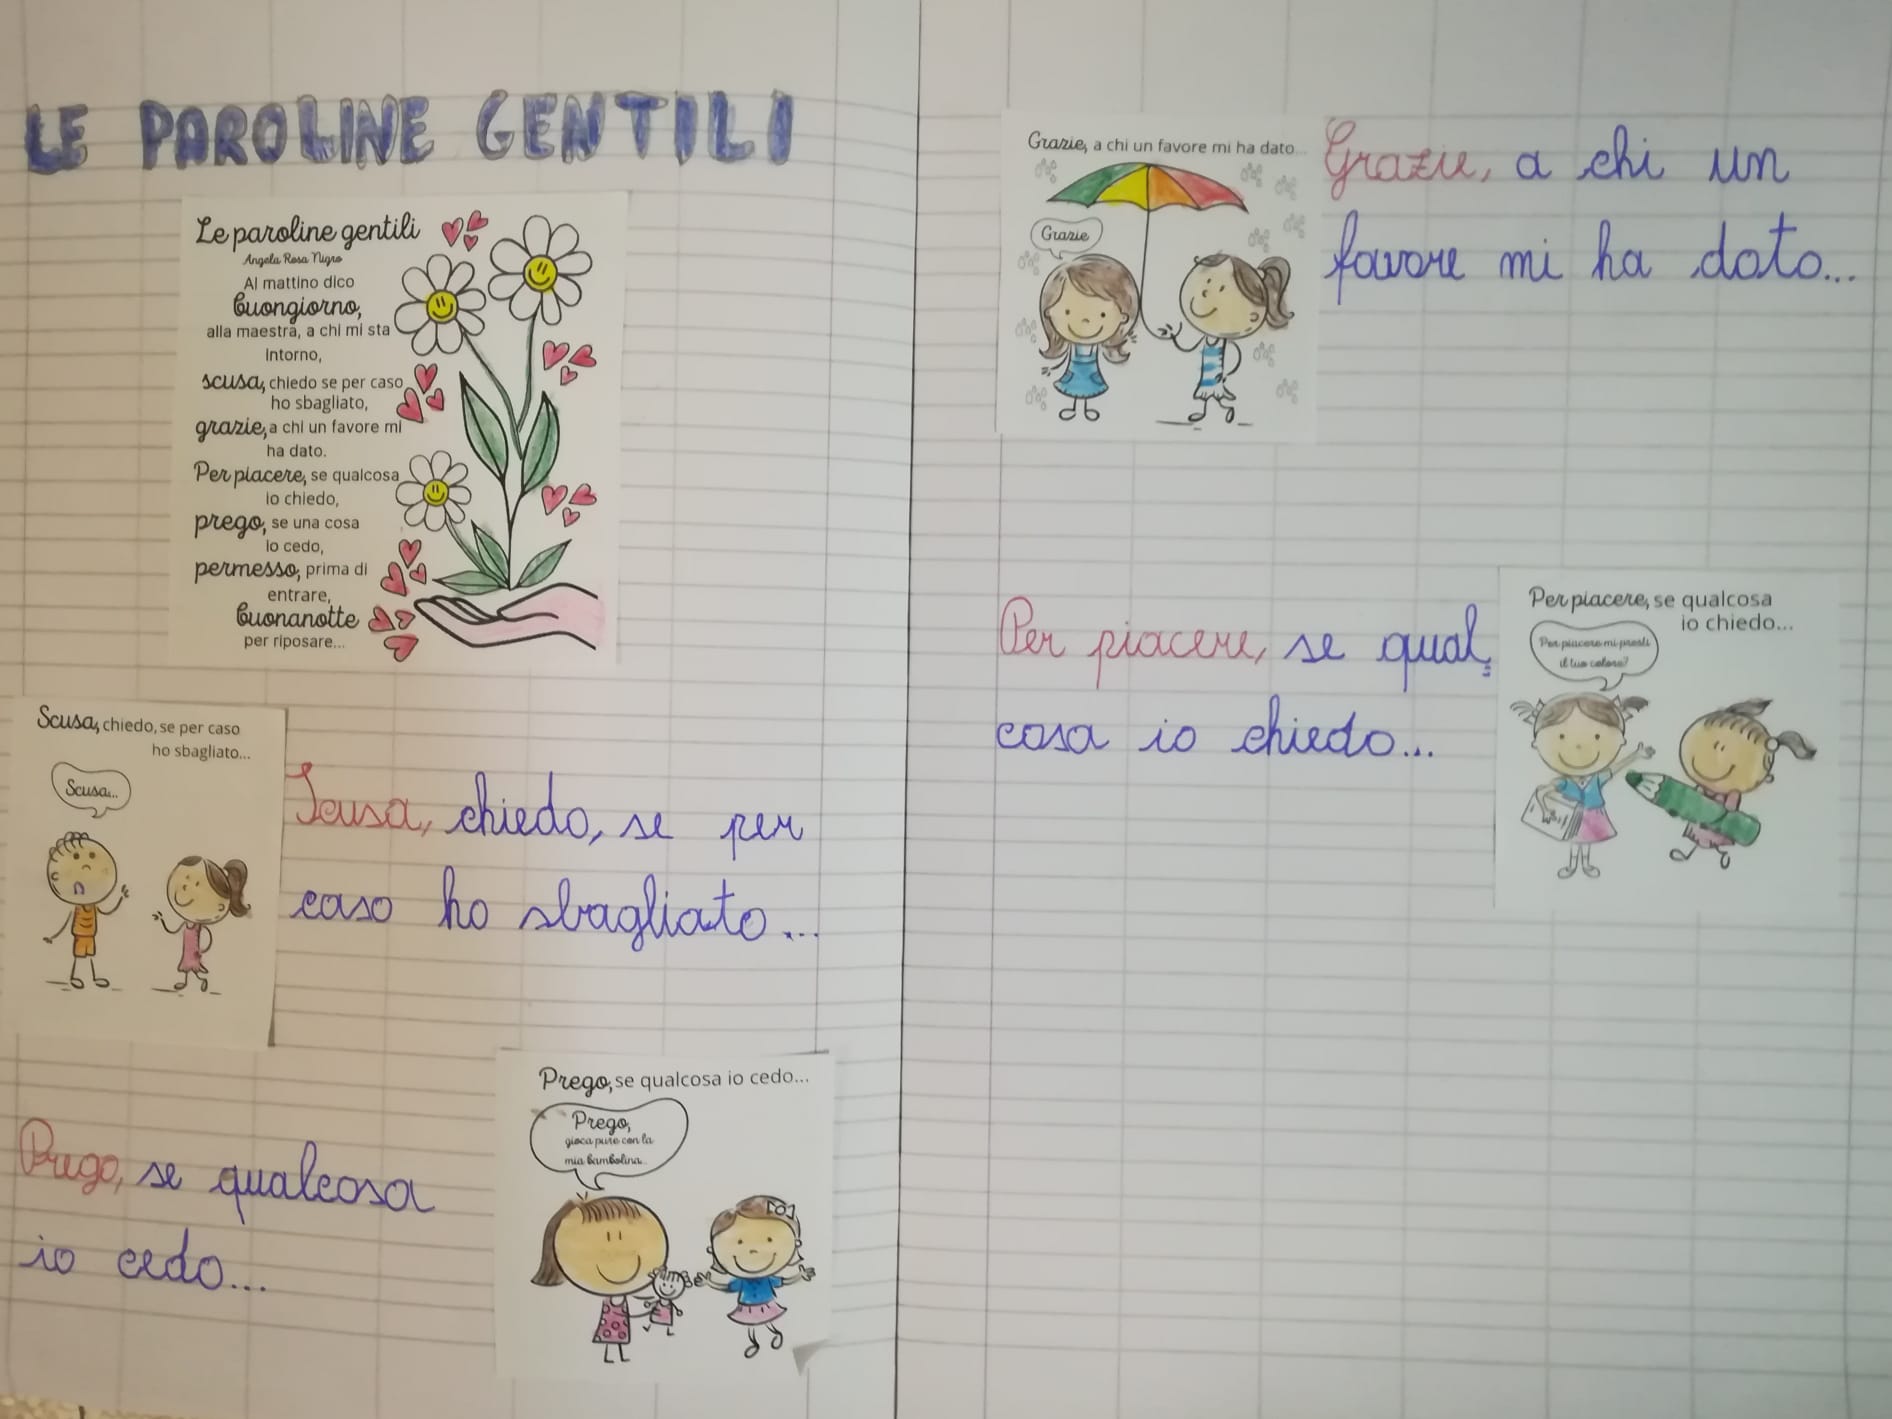 LE PAROLINE GENTILI
Le paroline gentili
Angela Rosa Nigro
Al mattino dico
buongiorno,
alla maestra, a chi mi sta
intorno,
scusa, chiedo se per caso
ho sbagliato,
grazie, a chi un favore mi
ha dato.
Per piacere, se qualcosa
io chiedo,
prego, se una cosa
io cedo,
permesso, prima di
entrare,
buonanotte
per riposare...
Scusa, chiedo, se per caso
ho sbagliato...
Scusa...
Scusa, chiedo, se per
caso ho sbagliato...
Prego, se qualcosa io cedo...
Prego,
gioca pure con la
mia bambolina...
Prego, se qualcosa
io cedo...
Grazie, a chi un favore mi ha dato...
Grazie
Grazie, a chi un
favore mi ha dato...
Per piacere, se qualcosa
io chiedo...
Per piacere mi presti
il tuo colore?
Per piacere, se qual=
cosa io chiedo...